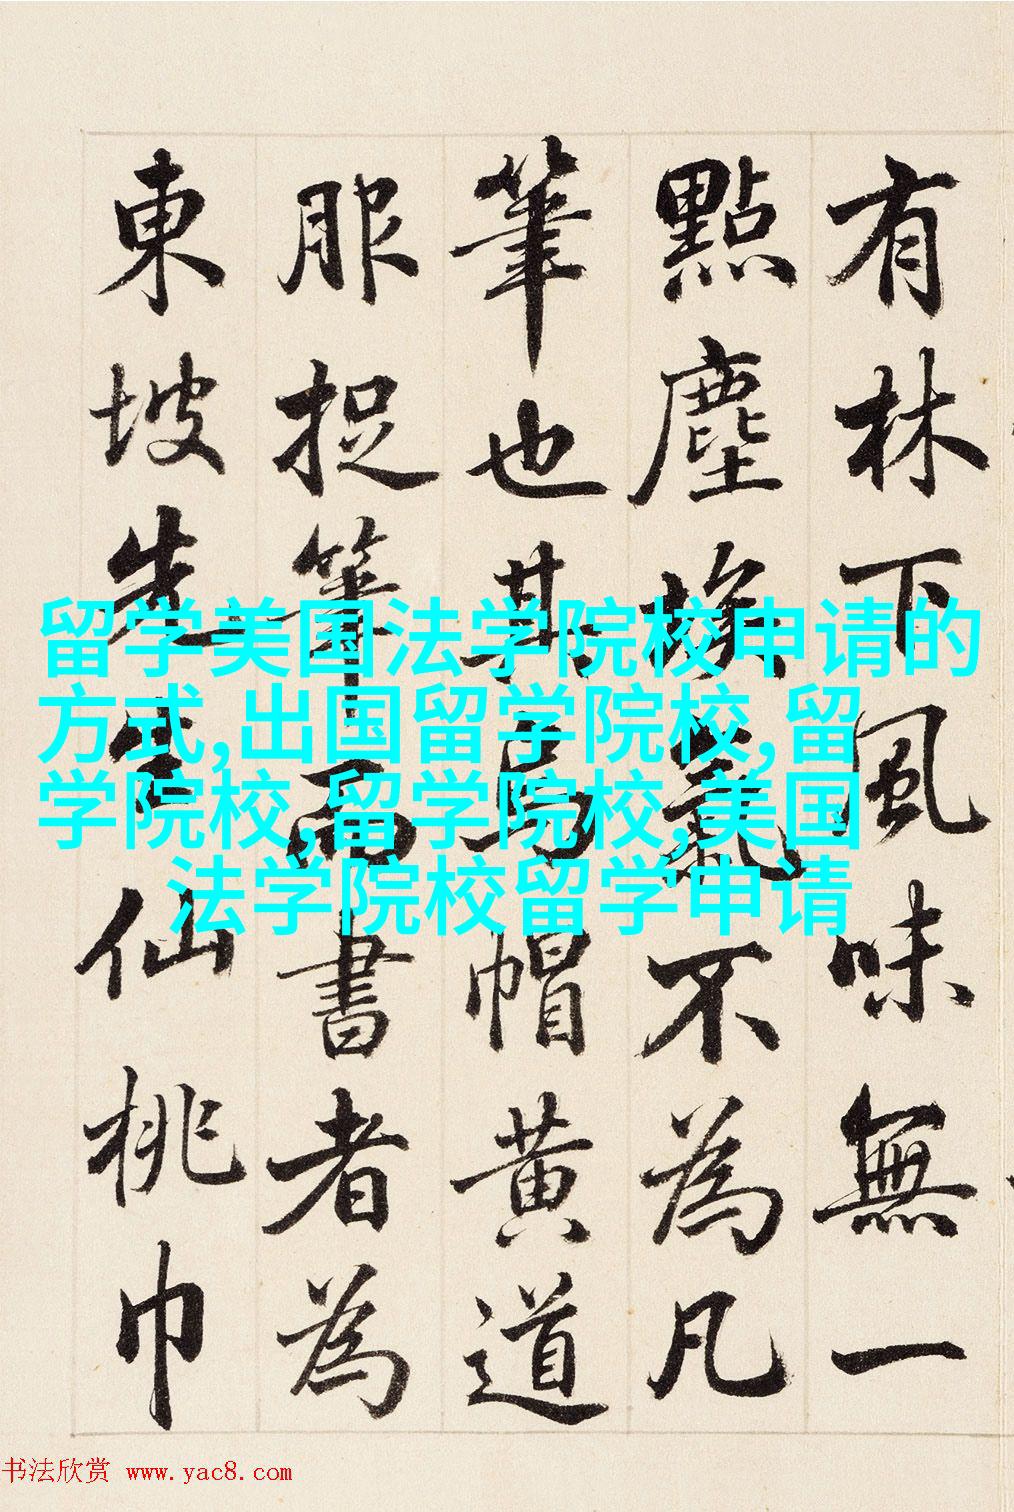 有林下風味無一
點塵埃氣不為凡
筆也其烏帽黃道
服捉筆而書者為
東坡先生仙桃巾
留学美国法学院校申请的
方式,出国留学院校,留
学院校,留学院校,美国
法学院校留学申请
书法欣赏 www.yac8.com